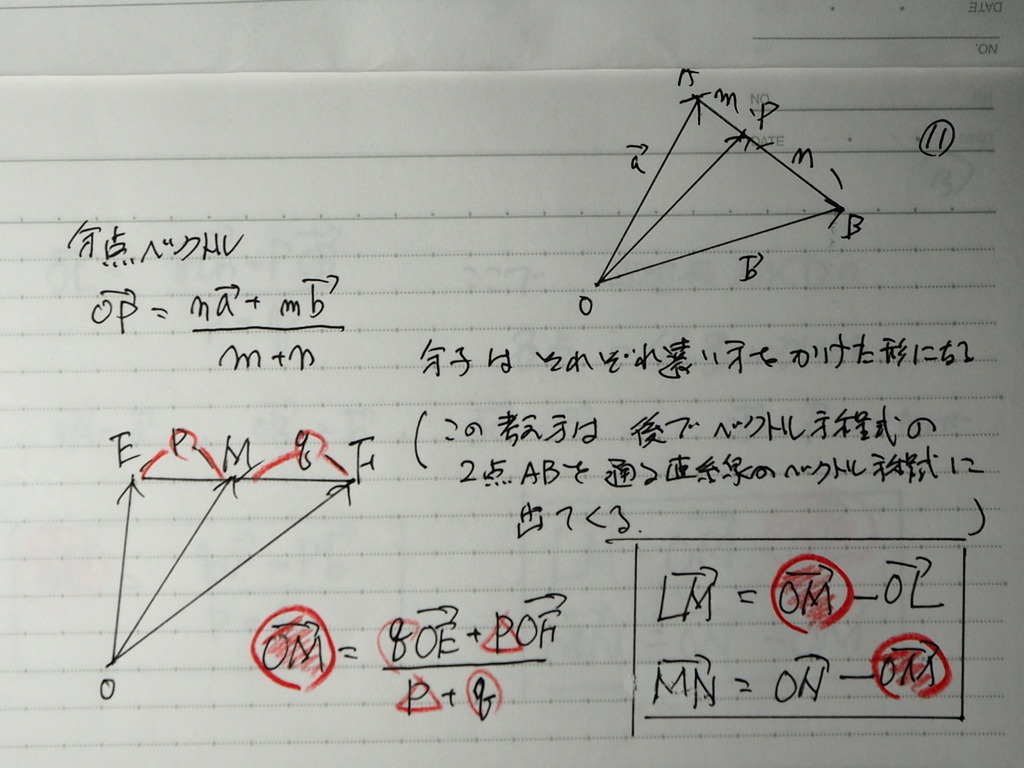 DATE
NO.
NO
DATE
⑪
A
m
P
n
B
a→
b→
O
分点ベクトル
OP→ = (na→ + mb→) / (m+n)
分子はそれぞれ遠い方をかけた形になる
(この考え方は後でベクトル方程式の
2点ABを通る直線のベクトル方程式に
出てくる.)
E P M q F
O
OM→ = (qOE→ + POF→) / (P + q)
LM→ = OM→ - OL→
MN→ = ON→ - OM→